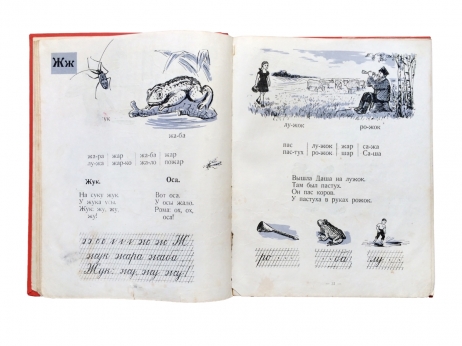 Жж
ук
жа-ба
жа-ра жар жа-ба жар
лу-жа жар-ко жа-ло пожар
Жук.
На суку жук.
У жука усы.
Жук: жу, жу,
жу!
Оса.
Вот оса.
У осы жало.
Рома: ов, ов,
оса!
жук жара жаба
Жук: жу, жу, жу!
лу-жок
ро-жок
пас лу-жок жар са-жа
пас-тух ро-жок шар Са-ша
Вышла Даша на лужок.
Там был пастух.
Он пас коров.
У пастуха в руках рожок.
ро ба лу